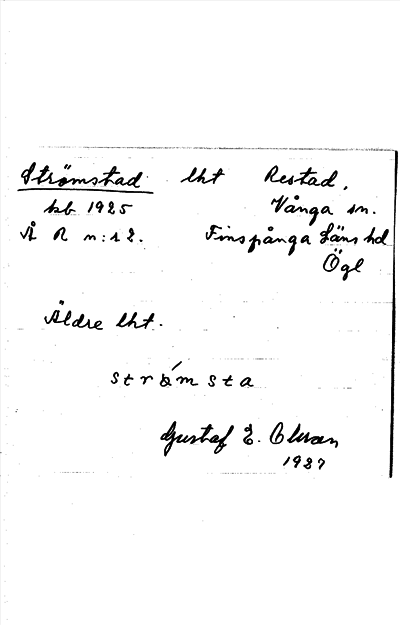 Strömstad lht Restad,
kb 1925 Vånga sn.
Å R n:s 2. Finspånga Läns hd
Ögl
Äldre lht.
strömsta
Gustaf E. Olsson
1927